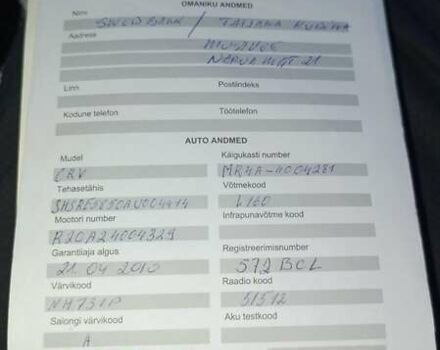 OMANIKU ANDMED
Nimi SWED BANK / TATJANA
Aadress
MUSTVEE
NARVA MNT 21
Linn Postiindeks
Kodune telefon Töötelefon
AUTO ANDMED
Mudel Käigukasti number
CRV MRHA-4004281
Tehasetähis Võtmekood
SHSRE5850AU004414 L160
Mootori number Infrapunavõtme kood
R20A24004329
Garantiiaja algus Registreerimisnumber
21.04 2010 572 BCL
Värvikood Raadio kood
NH731P 51512
Salongi värvikood Aku testkood
A